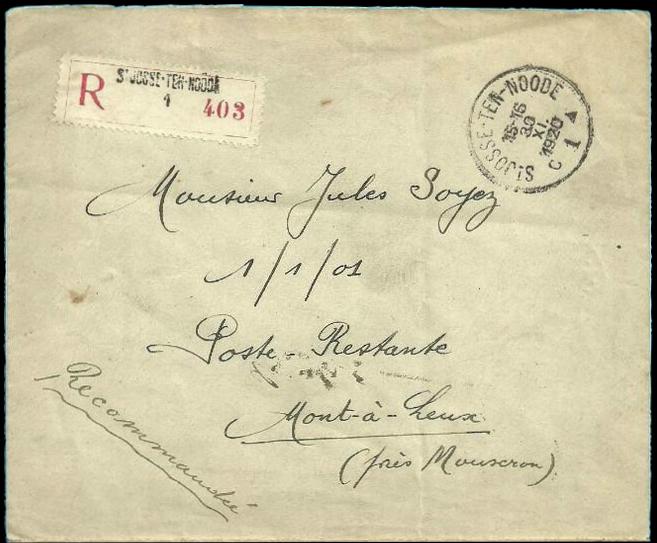 R
ST JOSSE-TEN-NOODE
1
403
ST JOSSE-TEN-NOODE
15-16
30
XI.
1920
C 1
Monsieur Jules Soyez
1/1/01
Poste-Restante
Mont-à-Leux
(près Mouscron)
Recommandée